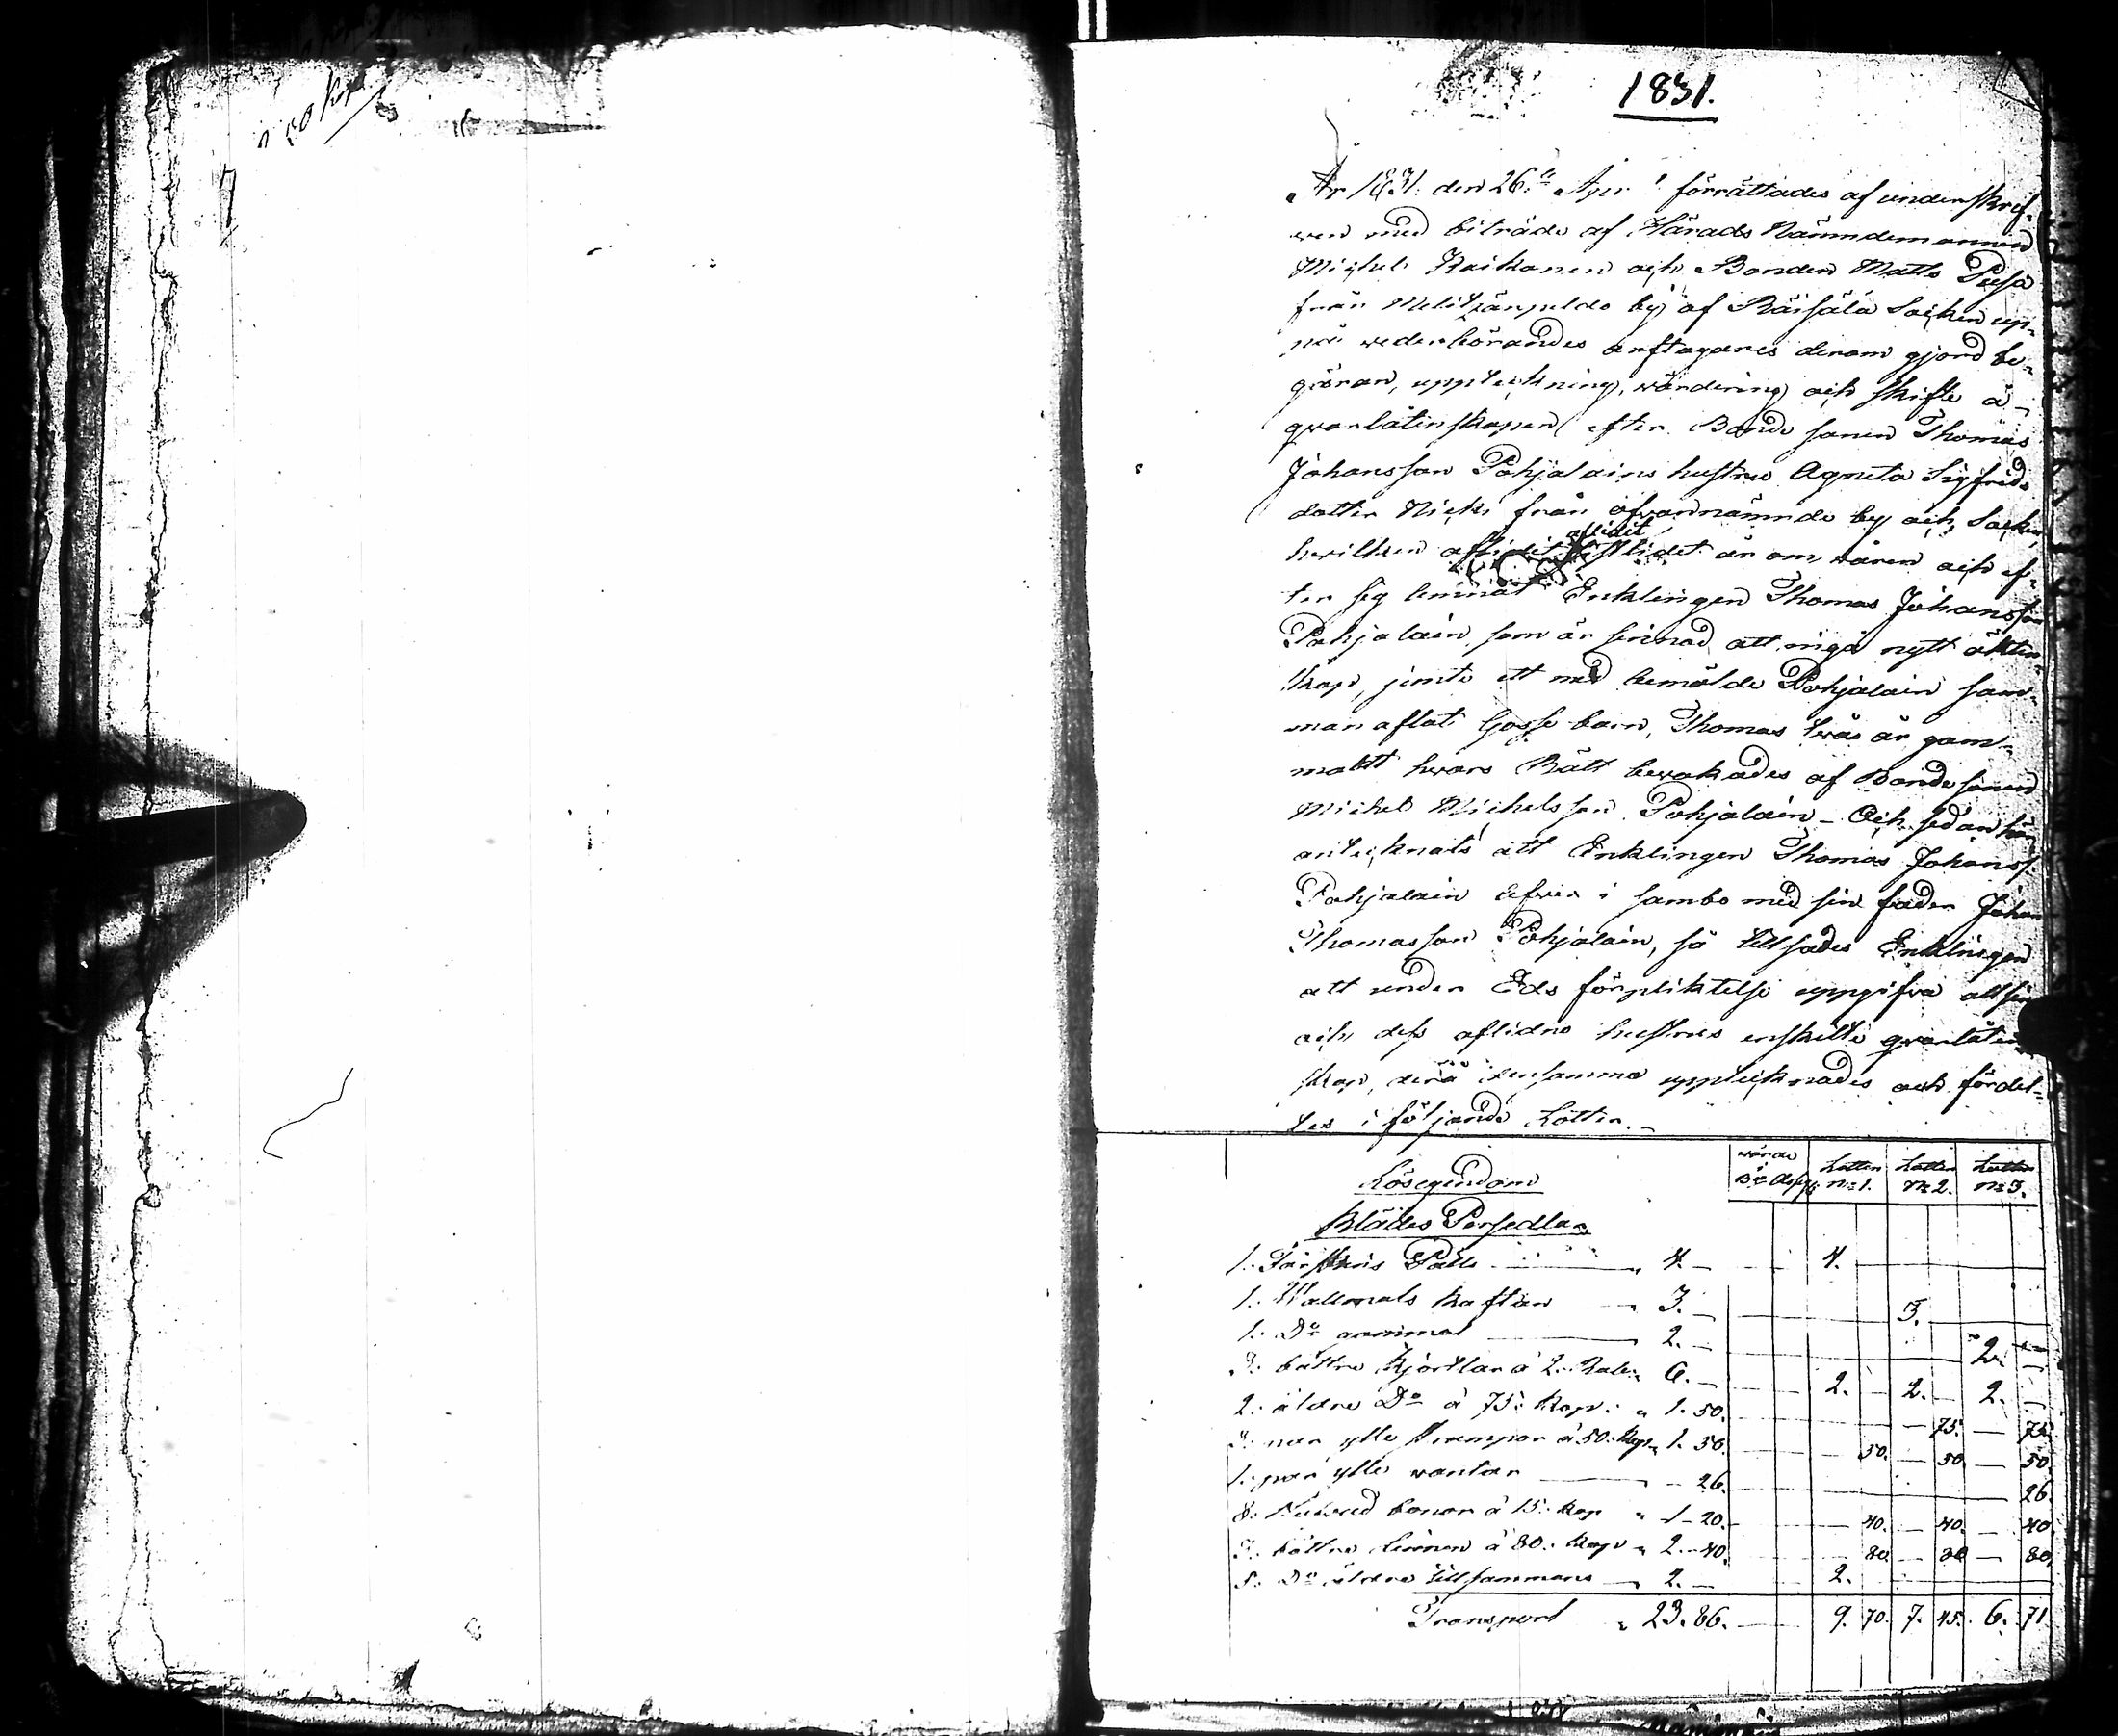 1831.
År 1831. den 26:te Apri förrättades af underskrif-
ven med biträde af Härads Nämndemannen
Michel Kaikonen och Bonden Matts Pusa
från Melitzänpeldo by af Räisälä Socken up-
på vederbörandes arftagares derom gjord be-
gäran, uppteckning, värdering och skifte å
qvarlåtenskapen efter Bonde sonen Thomas
Johansson Pohjalains hustru Agneta Sigfrids
dotter Nicki från ofvannämnde by och Socken,
hvilken aflidit sistlidet år om våren och ef-
ter sig lemnat Enklingen Thomas Johansson
Pohjalain, som är sinnad att ingå nytt äkten-
skap, jemte ett med bemälde Pohjalain sam-
man aflat Gosse barn, Thomas två år gam-
malt hvars Rätt bevakades af Bondesonen
Michel Michelsson Pohjalain – Och sedan
antecknats att Enklingen Thomas Johanss:
Pohjalain lefver i sambo med sin fader Johan
Thomasson Pohjalain, så tillsades Enklingen
att under Eds förpliktelse uppgifva all sin
och dess aflidna hustrus enskilte qvarlåten
skap, derå densamma upptecknades och fördel-
tes i följande Lotter. –
värde i Lotten Lotten Lotten
N:o 1. N:o 2. N:o 3.
Lösegendom
Klädes Persedlar
1. Fårskins Päls " 4. – 4.
1. Wallmals kaftan " 3. – 3.
1. D:o gammal 2. – 2. –
3. bättre Kjortlar à 2. Rub: " 6. – 2. – 2. – 2. –
2. äldre D:o à 75: Kop: " 1. 50. – 75. – 75.
3. par ylle strumpor à 50. Kop " 1. 50. – 50. – 50. – 50.
1. par ylle vantar – 26. 26.
8. bonor à 15. Kop " 1 – 20. – 40. – 40. – 40.
3. bättre Linnen à 80. Kop " 2. – 40. – 80 – 80 – 80.
5. D:o äldre tillsammans 2. – 2.
Transport " 23. 86. – 9. 70. 7. 45. 6. 71.